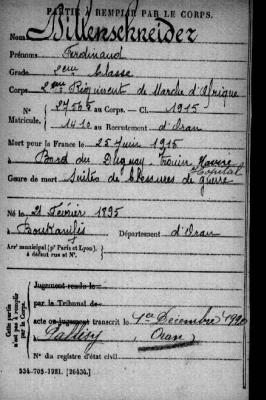 PARTIE À REMPLIR PAR LE CORPS.
Nom Billenschneider
Prénoms Ferdinand
Grade 2ème Classe
Corps 2ème Régiment de Marche d'Afrique
N° 27505 au Corps. — Cl. 1915
Matricule. 1410 au Recrutement d'Oran
Mort pour la France le 25 Juin 1915
à Bord du Duguay-Trouin Navire Hôpital
Genre de mort Suites de blessures de guerre
Né le 21 Février 1895
à Boukanéfis Département d'Oran
Arr^t municipal (p^r Paris et Lyon),
à défaut rue et N°.
Cette partie n'est pas à remplir par le Corps.
Jugement rendu le
par le Tribunal de
acte ou jugement transcrit le 1er Décembre 1920
à Palissy Oran
N° du registre d'état civil
534-708-1921. [26434.]